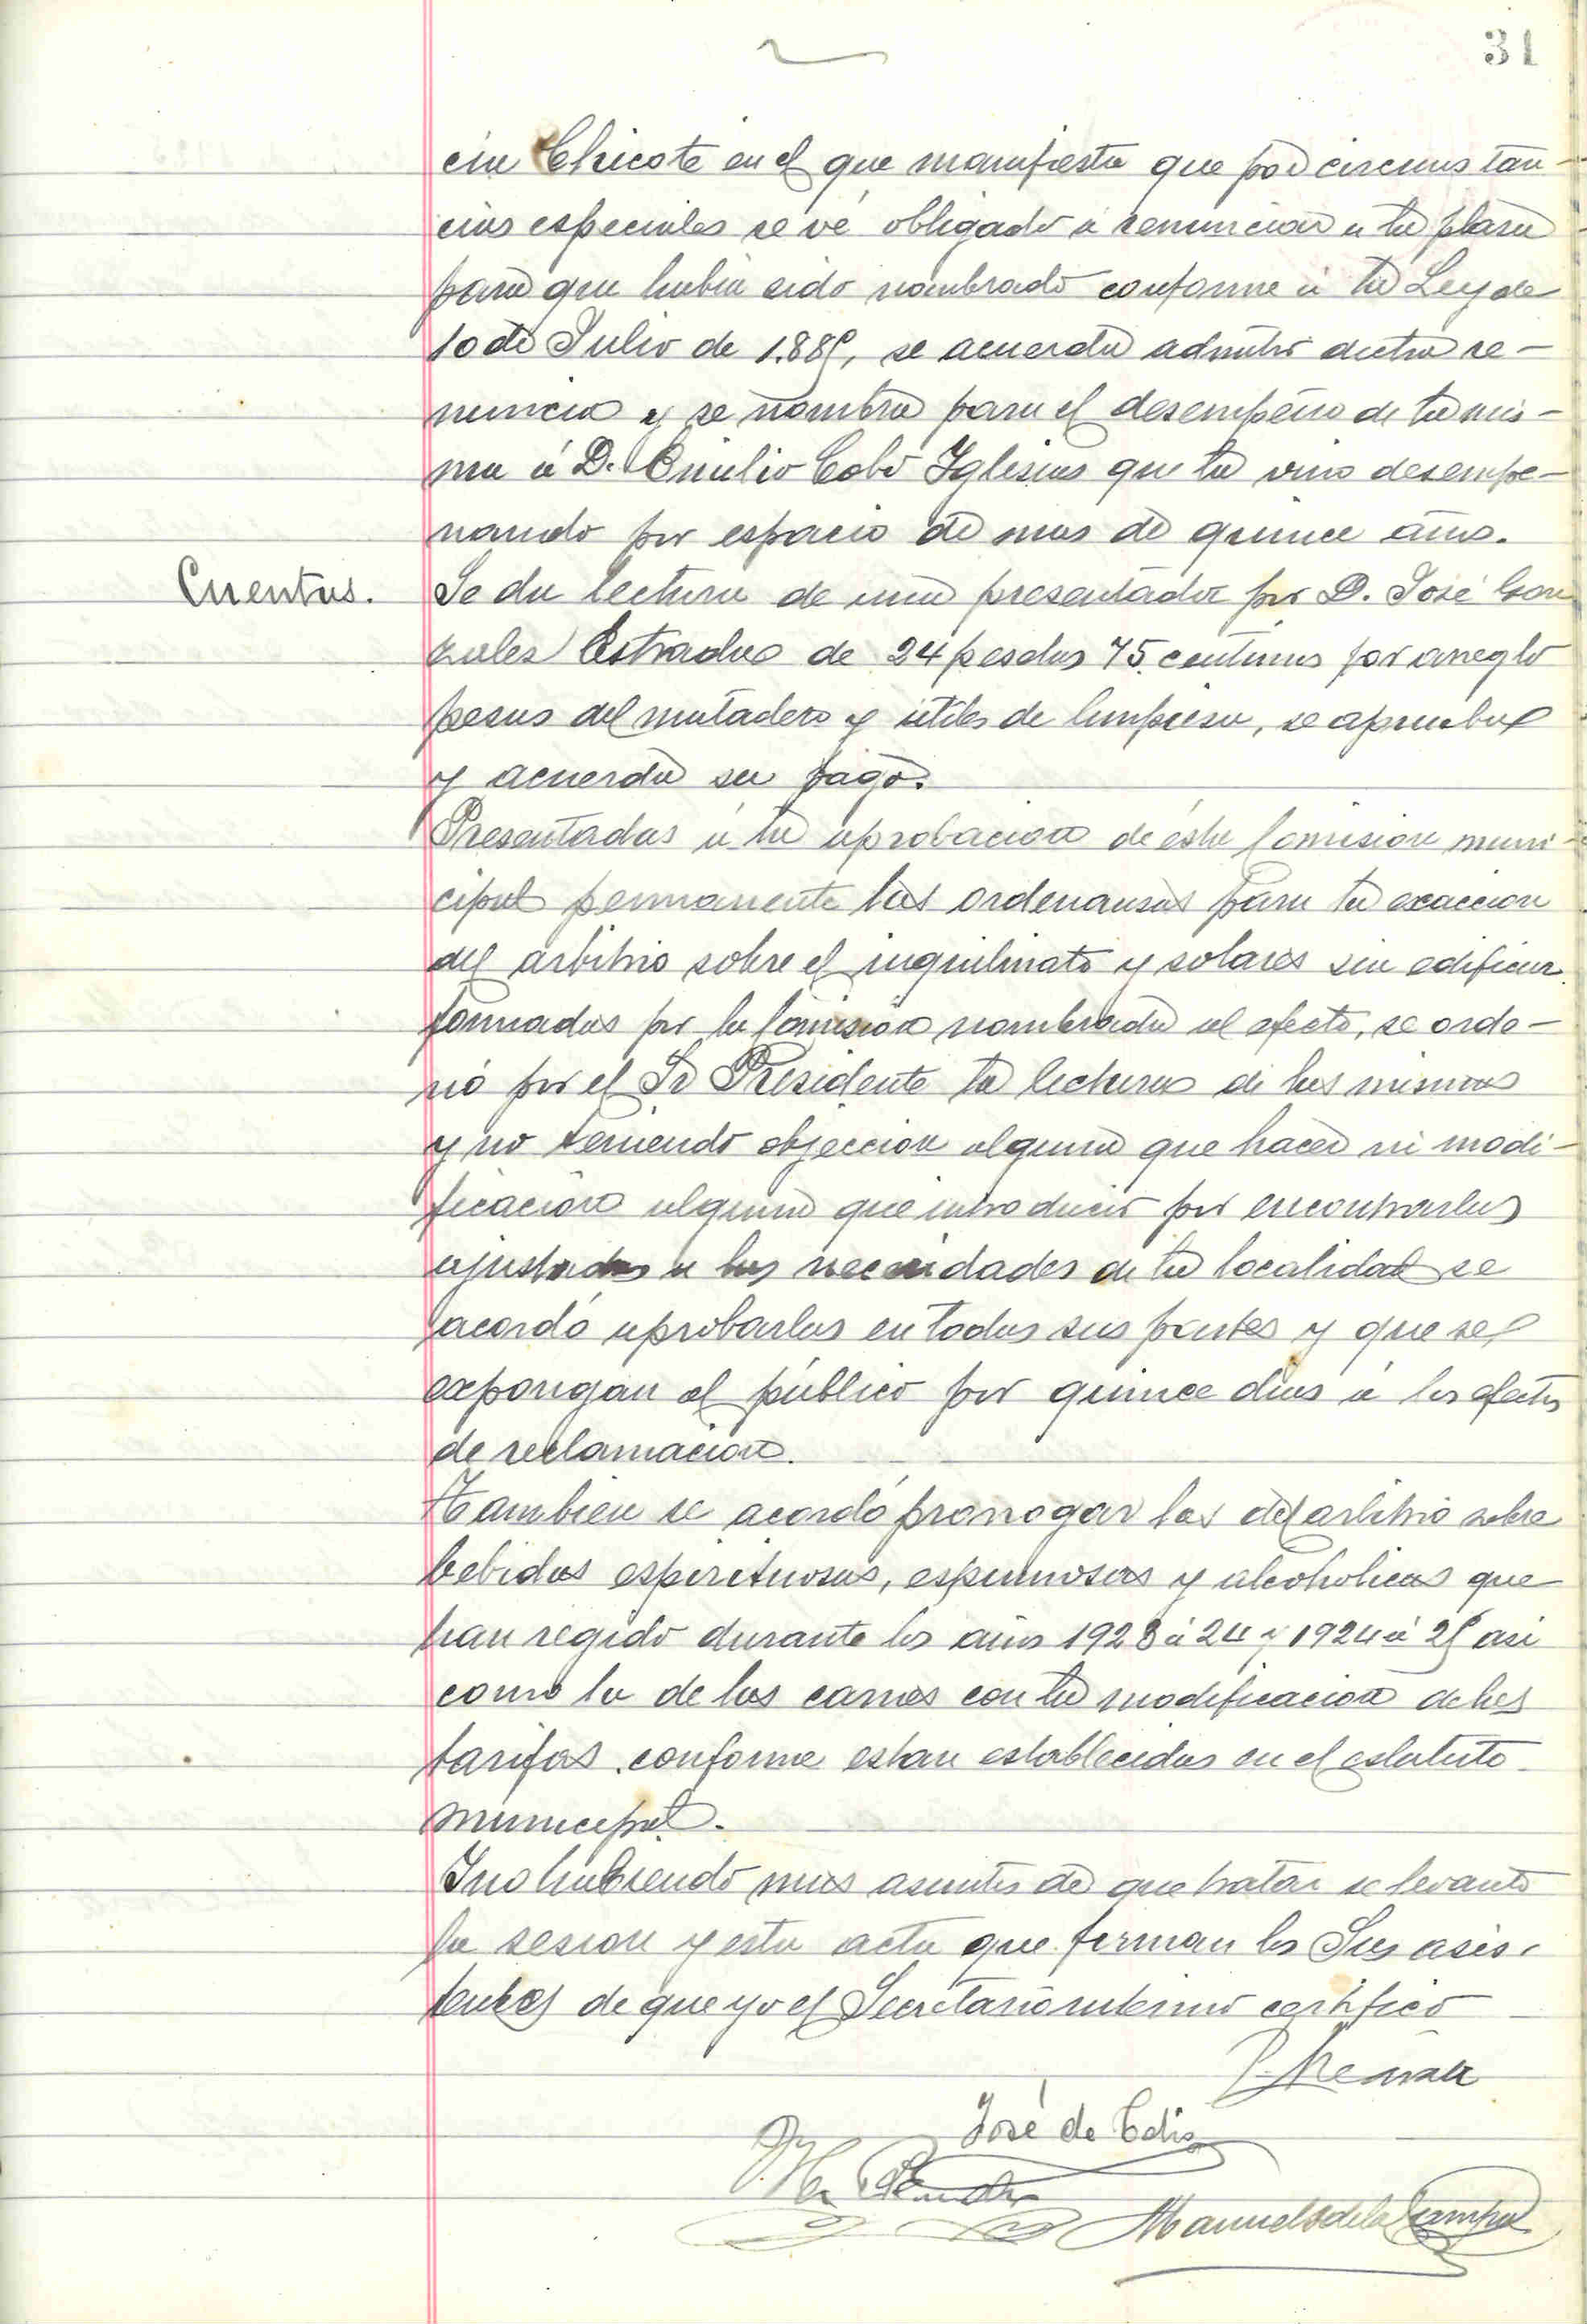 31
cia Chicote en el que manifiesta que por circunstan-
cias especiales se vé obligado a renunciar a la plaza
para que habia sido nombrado conforme á la Ley de
10 de Julio de 1.885, se acuerda admitir dicha re-
nuncia y se nombra para el desempeño de la mis-
ma á D. Emilio Cobo Iglesias que la vino desempe-
nando por espacio de mas de quince años.
Cuentas.
Se da lectura de una presentada por D. José Gon
zales Estrada de 24 pesetas 75 centimos por arreglo
pesas del matadero y utiles de limpiesa, se aprueba
y acuerda su pago.
Presentadas á la aprobacion de ésta Comision muni-
cipal permanente las ordenansas para la exaccion
del arbitrio sobre el inquilinato y solares sin edificar
formadas por la Comision nombrada al efecto, se orde-
nó por el Sr Presidente la lectura de las mismas
y no teniendo objeccion alguna que hacer ni modi-
ficacion alguna que introducir por encontrarlas
ajustadas a las necesidades de la localidad se
acordó aprobarlas en todas sus partes y que se
expongan al público por quince dias á los efectos
de reclamacion.
Tambien se acordó prorrogar las del arbitrio sobre
bebidas espirituosas, espumosas y alcoholicas que
han regido durante los años 1923 á 24 y 1924 á 25 asi
como la de las carnes con la modificacion de las
tarifas conforme estan establecidas en el estatuto
municipal.
Y no habiendo mas asuntos de que tratar se levanto
la sesion y esta acta que firman los Sres asis-
tentes de que yo el Secretario interino certifico
José de
Manuel de la Campa